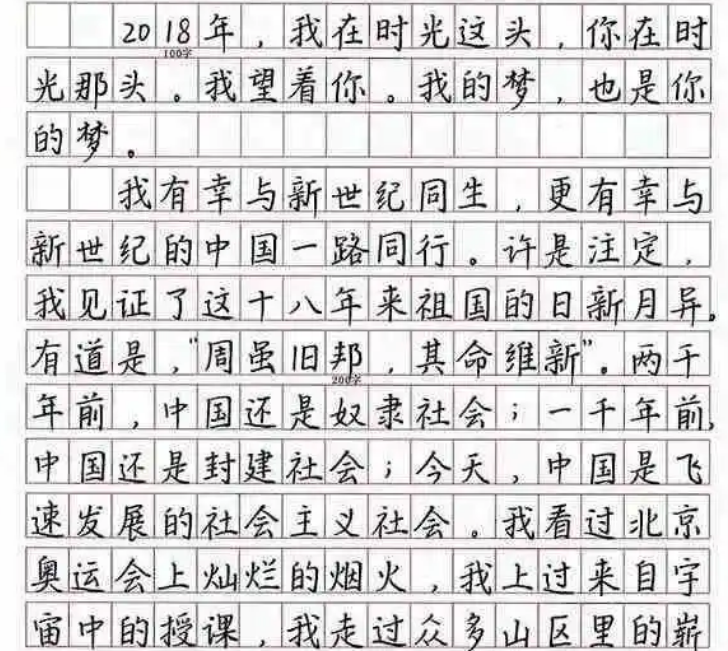 2018年，我在时光这头，你在时
100字
光那头。我望着你。我的梦，也是你
的梦。
我有幸与新世纪同生，更有幸与
新世纪的中国一路同行。许是注定，
我见证了这十八年来祖国的日新月异。
有道是，"周虽旧邦，其命维新"。两千
200字
年前，中国还是奴隶社会；一千年前，
中国还是封建社会；今天，中国是飞
速发展的社会主义社会。我看过北京
奥运会上灿烂的烟火，我上过来自宇
宙中的授课，我走过众多山区里的崭